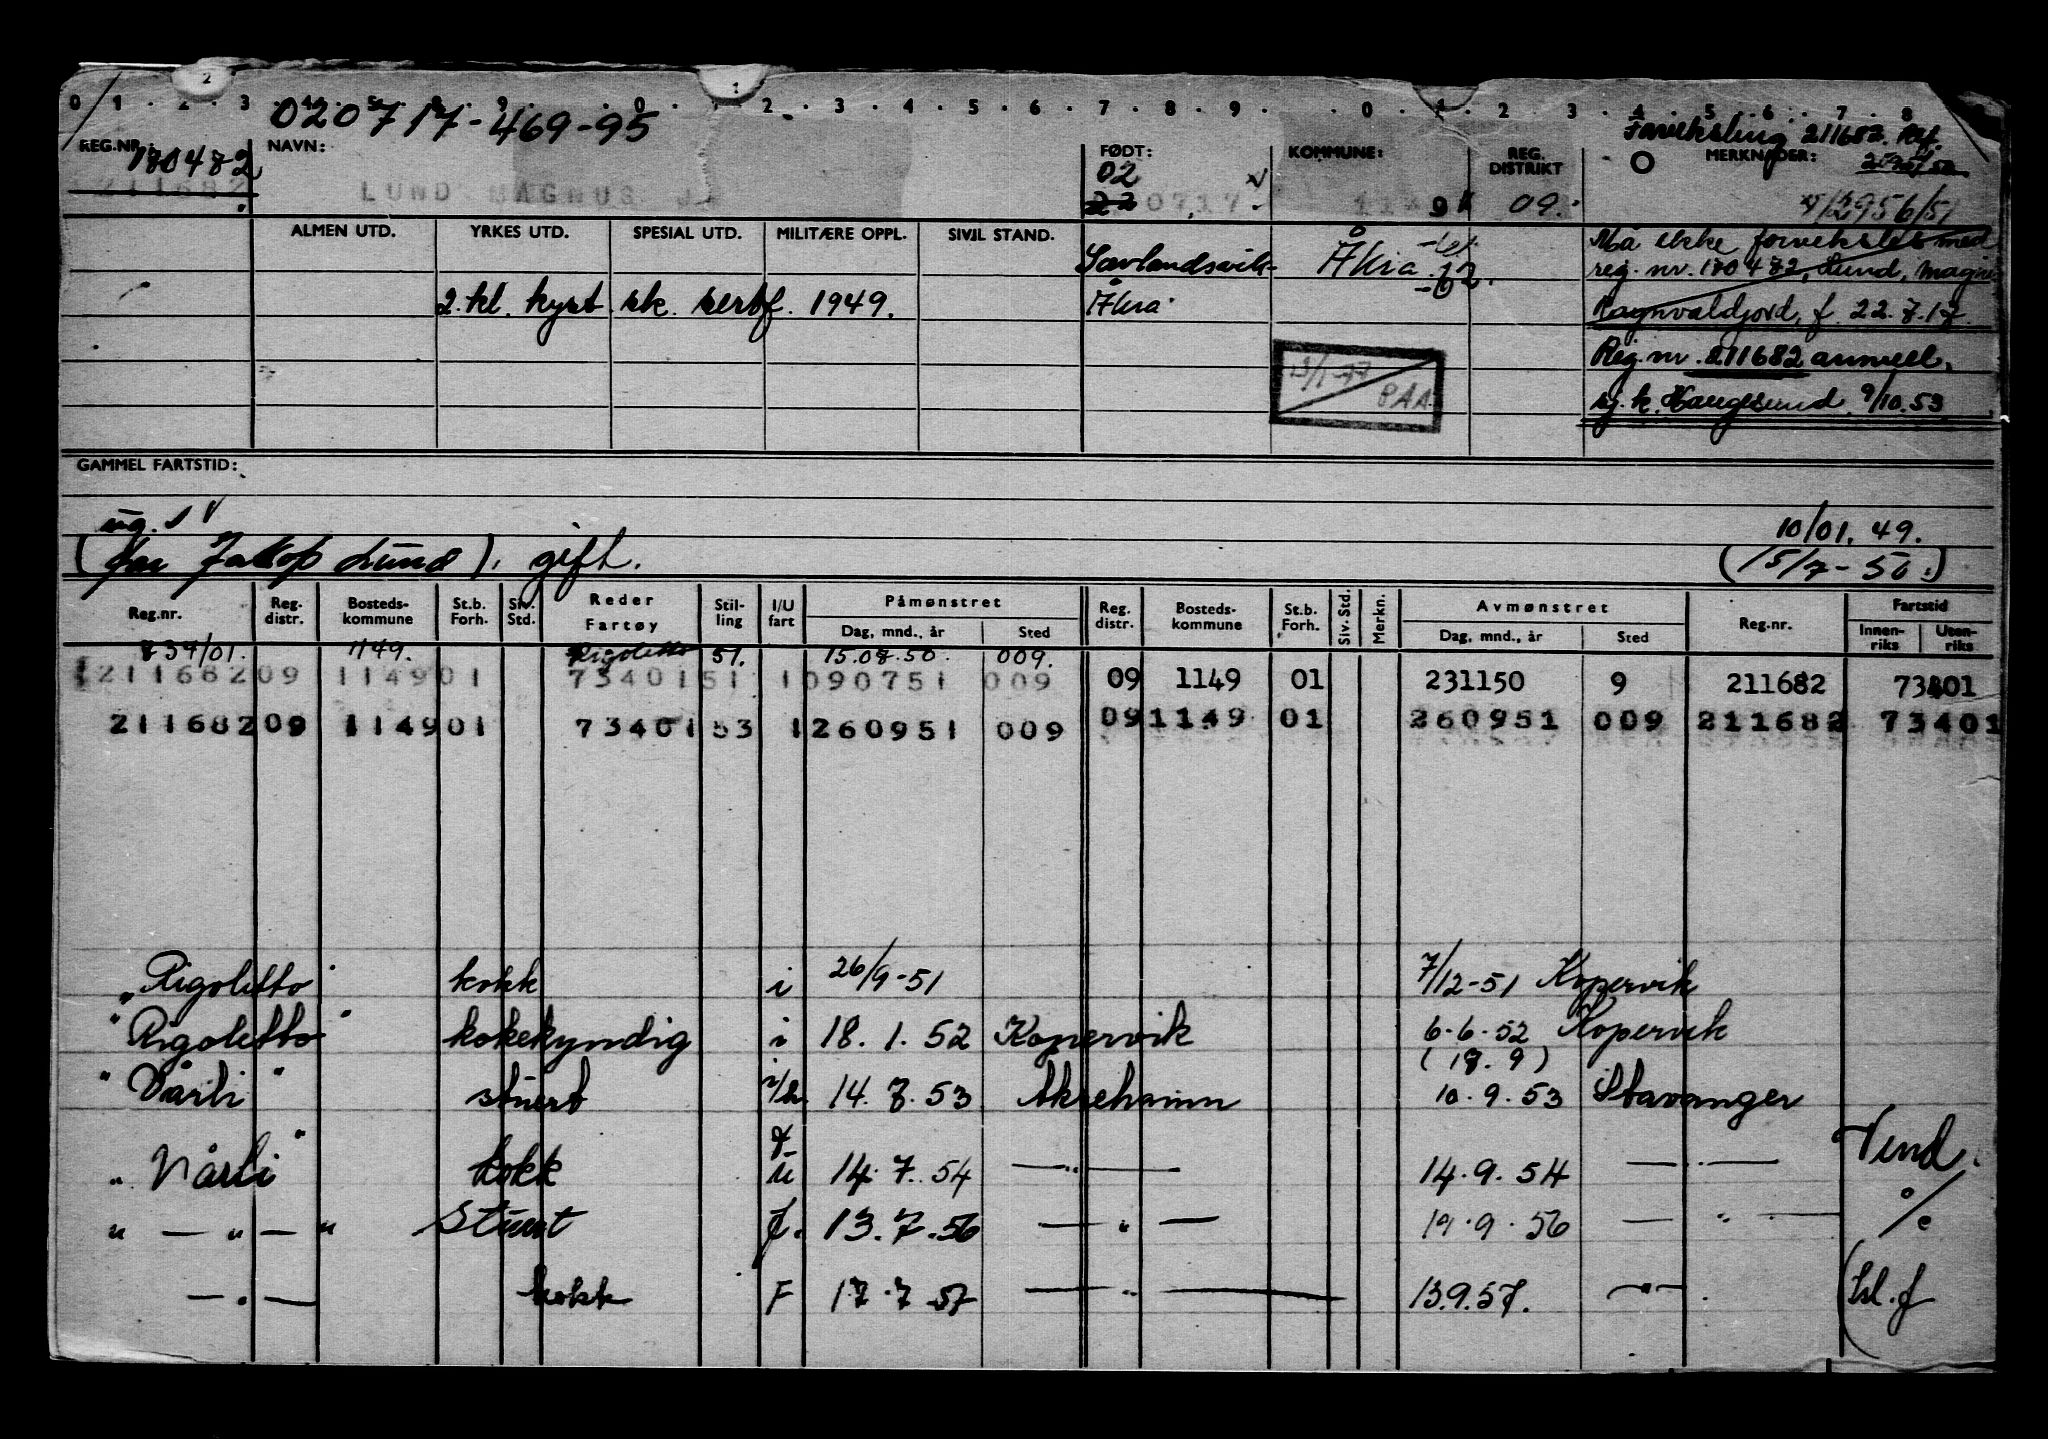 0 1 . 2 . 3 . 4 . 5 . 8 . 9 . . 0 . . 2 . 3 . 4 . 5 . 6 . 7 . 8 . 9 . . 0 . 1 . 2 . 3 . 4 . 5 . 6 . 7 . 8
020717-469-95
Forveksling 211682.
REG.NR.: NAVN: FØDT: KOMMUNE: REG. DISTRIKT MERKNADER:
180472 02
211682 LUND MAGNUS J. 22 0717 114 9 09. 2956/51
ALMEN UTD. YRKES UTD. SPESIAL UTD. MILITÆRE OPPL. SIVIL STAND.
Sævlandsvik- Åkra Må ikke forveksles med
reg. nr. 180472, Lund, Magne
2. kl. kyst sk. sertf. 1949. Åkra Ragnvaldjord, f. 22.7.17
Reg. nr. 211682 annull.
13/1-77 PAA
sj.k. Haugesund 9/10.53
GAMMEL FARTSTID:
ug. 10/01.49.
(far Jakob Lund). gift. (15/7-50.)
Reg.nr. Reg. distr. Bosteds- kommune St.b. Forh. Siv. Std. Reder Fartøy Stil- ling I/U fart Påmønstret Dag, mnd., år Sted Reg. distr. Bosteds- kommune St.b. Forh. Siv. Std. Merkn. Avmønstret Dag, mnd., år Sted Reg.nr. Fartstid Innen- riks Uten- riks
839/01. 1149. Rigoletto 51. 15.08.50. 009.
211682 09 1149 01 73401 51 1 090751 009 09 1149 01 231150 9 211682 73401
211682 09 1149 01 73401 53 1 260951 009 09 1149 01 260951 009 211682 73401
"Rigoletto" kokk i 26/9-51 7/12-51 Kopervik
"Rigoletto" kokekyndig i 18.1.52 Kopervik 6.6.52 Kopervik
(18.9)
"Vårli" stuert 14.7.53 Akrehamn 10.9.53 Stavanger
"Vårli" kokk u 14.7.54 — " — 14.9.54 — " — Vend.
" — " — " Stuert f. 13.7.56 — " — 19.9.56 — " —
— " — kokk F 17.7.57 — " — 13.9.57. — " — (Isl. f